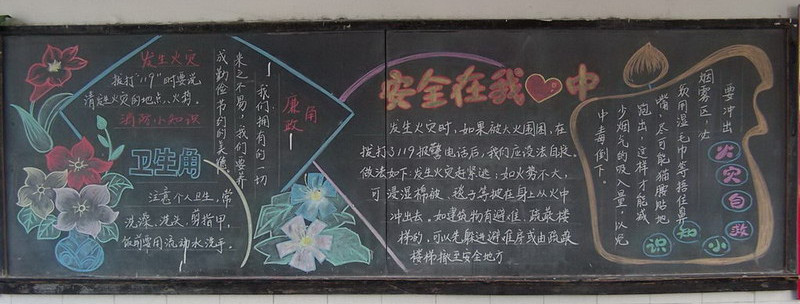 发生火灾
拨打“119”时要说
清楚火灾的地点、火势。
消防小知识
卫生角
注意个人卫生，常
洗澡、洗头、剪指甲，
饭前要用流动水洗手。
廉政角
我们拥有的一切
来之不易，我们要养
成勤俭节约的美德。
安全在我中
发生火灾时，如果被大火围困，在
拨打119报警电话后，我们应设法自救。
做法如下：发生火灾赶紧逃；如火势不大，
可浸湿棉被、毯子等披在身上从火中
冲出去。如建筑物有避难、疏散楼
梯的，可以先躲进避难层或由疏散
楼梯撤至安全地方
火灾自救
小知识
要冲出
烟雾区，必
须用湿毛巾等捂住鼻
嘴，尽可能猫腰贴地
跑出，这样才能减
少烟气的吸入量，以免
中毒倒下。